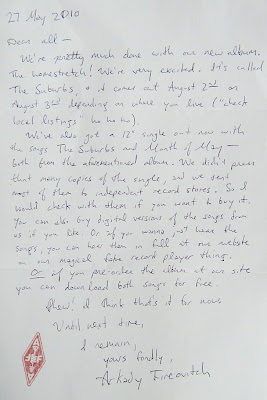 27 May 2010
Dear all —
We're pretty much done with our new album.
The homestretch! We're very excited. It's called
The Suburbs, & it comes out August 2nd or
August 3rd depending on where you live ("check
local listings" he he he).
We've also got a 12" single out now with
the songs The Suburbs and Month of May —
both from the aforementioned album. We didn't press
that many copies of the single, and we sent
most of them to independent record stores. So I
would check with them if you want to buy it.
You can also buy digital versions of the songs from
us if you like. Or if you wanna just hear the
songs, you can hear them in full at our website
on our magical fake record player thing.
Or if you pre-order the album at our site
you can download both songs for free.
Phew! I think that's it for now.
Until next time,
I remain,
yours fondly,
Arkady Fireovitch